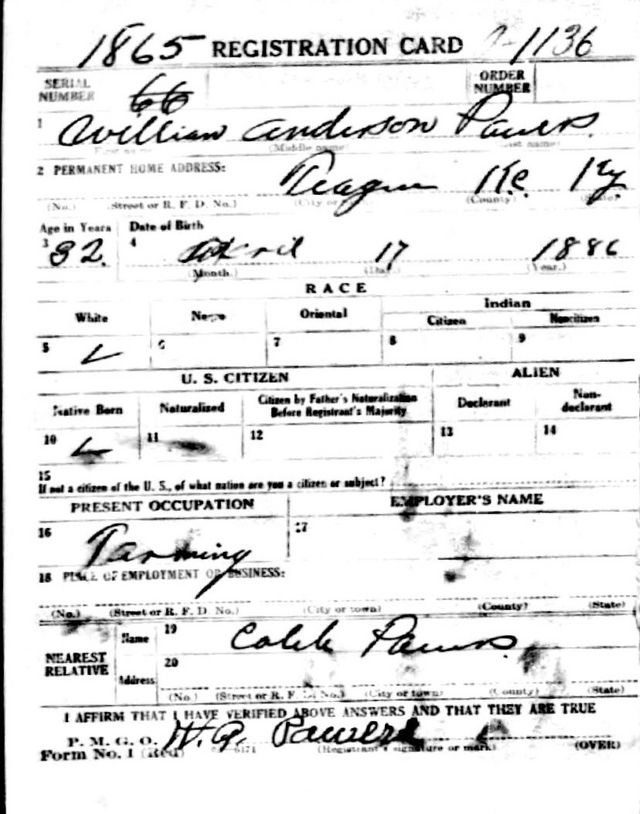 1865 REGISTRATION CARD 1136
SERIAL NUMBER 66 ORDER NUMBER
1 William Anderson Pawers.
(Middle name) (Last name)
2 PERMANENT HOME ADDRESS:
Teague Ky
(No.) (Street or R. F. D. No.) (City or (County) (State)
Age in Years Date of Birth
3 32. 4 17 1886
(Month.) (Day.) (Year.)
RACE
White Negro Oriental Indian
Citizen Noncitizen
5 6 7 8 9
U. S. CITIZEN ALIEN
Native Born Naturalized Citizen by Father's Naturalization Before Registrant's Majority Declarant Non-declarant
10 11 12 13 14
15
If not a citizen of the U. S., of what nation are you a citizen or subject?
PRESENT OCCUPATION EMPLOYER'S NAME
16 Farming 17
18 PLACE OF EMPLOYMENT OR BUSINESS:
(No.) (Street or R. F. D. No.) (City or town) (County) (State)
NEAREST RELATIVE Name 19 Caleb Pawers.
Address 20
(No.) (Street or R. F. D. No.) (City or town) (County) (State)
I AFFIRM THAT I HAVE VERIFIED ABOVE ANSWERS AND THAT THEY ARE TRUE
P. M. G. O.
Form No. 1 (Red) W. A. Pawers (Registrant's signature or mark) (OVER)